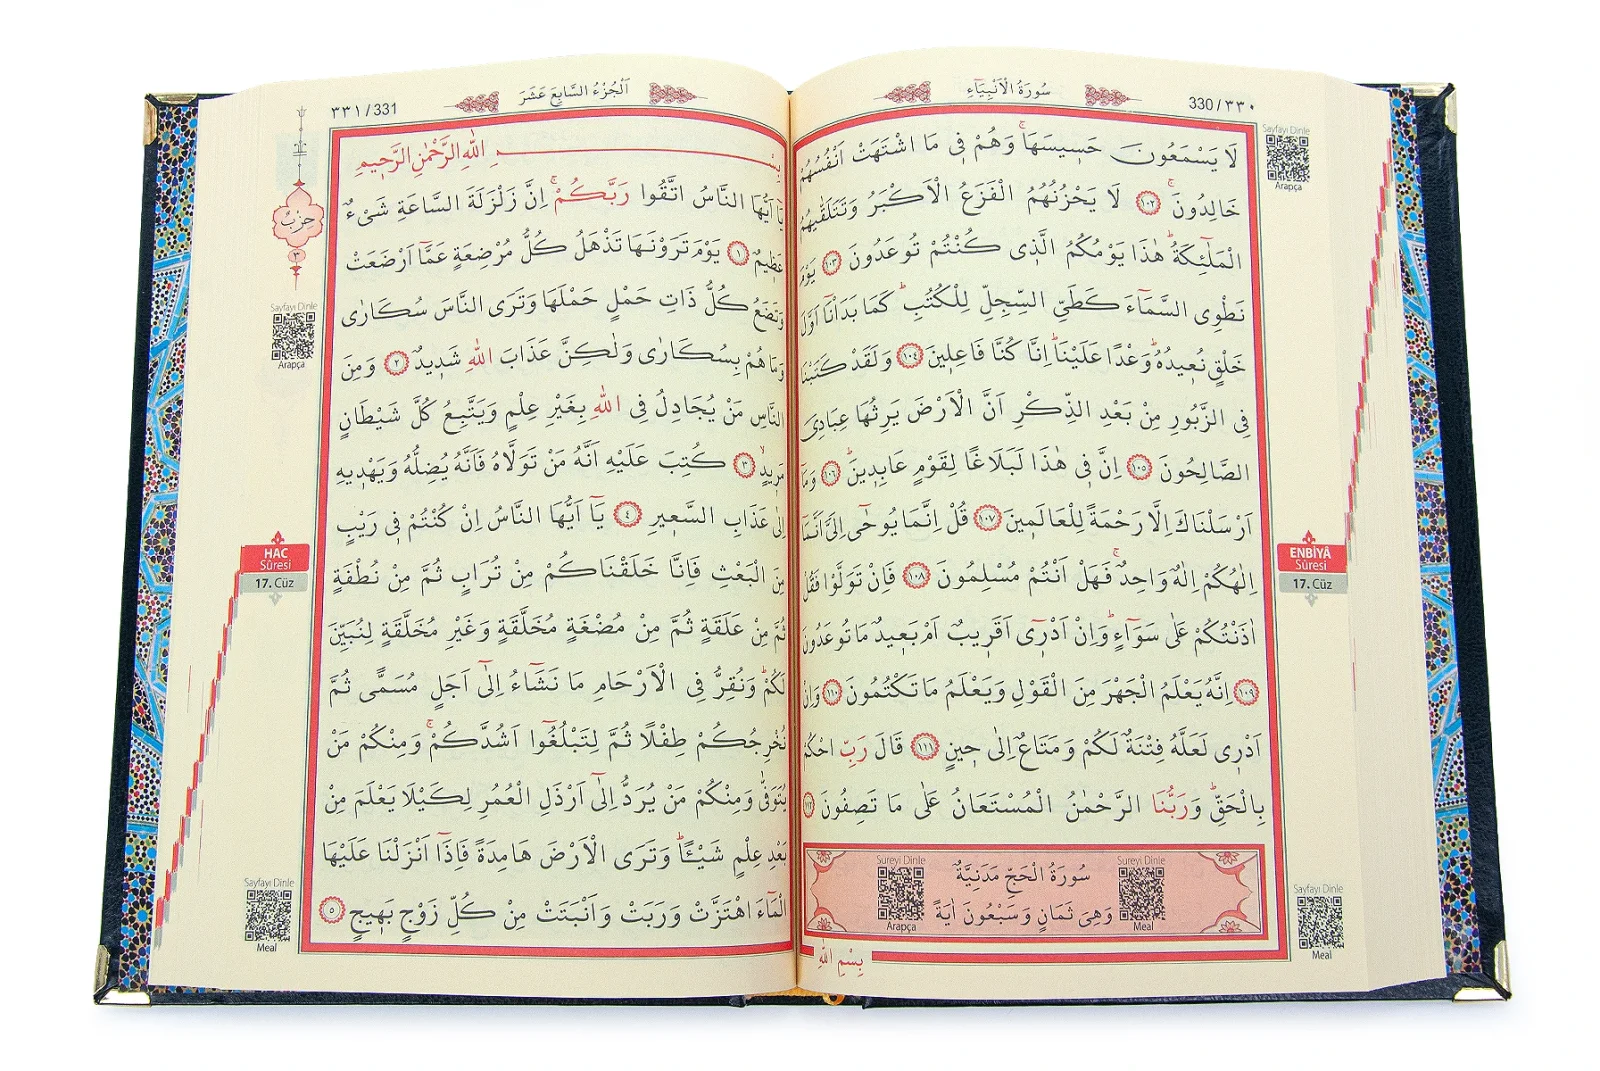 سُورَةُ الْاَنْبِيَاءِ
330 / ٣٣٠
لَا يَسْمَعُونَ حَسِيسَهَاۚ وَهُمْ فِي مَا اشْتَهَتْ اَنْفُسُهُمْ
خَالِدُونَۚ ١٠٢ لَا يَحْزُنُهُمُ الْفَزَعُ الْاَكْبَرُ وَتَتَلَقّٰيهُمُ
الْمَلٰٓئِكَةُۜ هٰذَا يَوْمُكُمُ الَّذِي كُنْتُمْ تُوعَدُونَ ١٠٣ يَوْمَ
نَطْوِي السَّمَٓاءَ كَطَيِّ السِّجِلِّ لِلْكُتُبِۜ كَمَا بَدَأْنَٓا اَوَّلَ
خَلْقٍ نُعِيدُهُۜ وَعْدًا عَلَيْنَاۜ اِنَّا كُنَّا فَاعِلِينَ ١٠٤ وَلَقَدْ كَتَبْنَا
فِي الزَّبُورِ مِنْ بَعْدِ الذِّكْرِ اَنَّ الْاَرْضَ يَرِثُهَا عِبَادِيَ
الصَّالِحُونَ ١٠٥ اِنَّ فِي هٰذَا لَبَلَاغًا لِقَوْمٍ عَابِدِينَۜ ١٠٦ وَمَٓا
اَرْسَلْنَاكَ اِلَّا رَحْمَةً لِلْعَالَمِينَ ١٠٧ قُلْ اِنَّمَا يُوحٰٓى اِلَيَّ اَنَّمَٓا
اِلٰهُكُمْ اِلٰهٌ وَاحِدٌۚ فَهَلْ اَنْتُمْ مُسْلِمُونَ ١٠٨ فَاِنْ تَوَلَّوْا فَقُلْ
اٰذَنْتُكُمْ عَلٰى سَوَٓاءٍۜ وَاِنْ اَدْرِٓي اَقَرِيبٌ اَمْ بَعِيدٌ مَا تُوعَدُونَ
١٠٩ اِنَّهُ يَعْلَمُ الْجَهْرَ مِنَ الْقَوْلِ وَيَعْلَمُ مَا تَكْتُمُونَ ١١٠ وَاِنْ
اَدْرِي لَعَلَّهُ فِتْنَةٌ لَكُمْ وَمَتَاعٌ اِلٰى حِينٍ ١١١ قَالَ رَبِّ احْكُمْ
بِالْحَقِّۜ وَرَبُّنَا الرَّحْمٰنُ الْمُسْتَعَانُ عَلٰى مَا تَصِفُونَ ١١٢
سُورَةُ الْحَجِّ مَدَنِيَّةٌ
وَهِيَ ثَمَانٍ وَسَبْعُونَ اٰيَةً
Sureyi Dinle
Meal
Sureyi Dinle
Arapça
بِسْمِ اللّٰهِ
Sayfayı Dinle
Arapça
ENBİYÂ
Sûresi
17. Cüz
Sayfayı Dinle
Meal
اَلْجُزْءُ السَّابِعَ عَشَرَ
٣٣١ / 331
بِسْمِ اللّٰهِ الرَّحْمٰنِ الرَّحِيمِ
يَٓا اَيُّهَا النَّاسُ اتَّقُوا رَبَّكُمْۚ اِنَّ زَلْزَلَةَ السَّاعَةِ شَيْءٌ
عَظِيمٌ ١ يَوْمَ تَرَوْنَهَا تَذْهَلُ كُلُّ مُرْضِعَةٍ عَمَّٓا اَرْضَعَتْ
وَتَضَعُ كُلُّ ذَاتِ حَمْلٍ حَمْلَهَا وَتَرَى النَّاسَ سُكَارٰى
وَمَا هُمْ بِسُكَارٰى وَلٰكِنَّ عَذَابَ اللّٰهِ شَدِيدٌ ٢ وَمِنَ
النَّاسِ مَنْ يُجَادِلُ فِي اللّٰهِ بِغَيْرِ عِلْمٍ وَيَتَّبِعُ كُلَّ شَيْطَانٍ
مَرِيدٍۙ ٣ كُتِبَ عَلَيْهِ اَنَّهُ مَنْ تَوَلَّاهُ فَاَنَّهُ يُضِلُّهُ وَيَهْدِيهِ
اِلٰى عَذَابِ السَّعِيرِ ٤ يَٓا اَيُّهَا النَّاسُ اِنْ كُنْتُمْ فِي رَيْبٍ
مِنَ الْبَعْثِ فَاِنَّا خَلَقْنَاكُمْ مِنْ تُرَابٍ ثُمَّ مِنْ نُطْفَةٍ
ثُمَّ مِنْ عَلَقَةٍ ثُمَّ مِنْ مُضْغَةٍ مُخَلَّقَةٍ وَغَيْرِ مُخَلَّقَةٍ لِنُبَيِّنَ
لَكُمْۜ وَنُقِرُّ فِي الْاَرْحَامِ مَا نَشَٓاءُ اِلٰٓى اَجَلٍ مُسَمًّى ثُمَّ
نُخْرِجُكُمْ طِفْلًا ثُمَّ لِتَبْلُغُٓوا اَشُدَّكُمْۚ وَمِنْكُمْ مَنْ
يُتَوَفّٰى وَمِنْكُمْ مَنْ يُرَدُّ اِلٰٓى اَرْذَلِ الْعُمُرِ لِكَيْلَا يَعْلَمَ مِنْ
بَعْدِ عِلْمٍ شَيْـًٔاۜ وَتَرَى الْاَرْضَ هَامِدَةً فَاِذَٓا اَنْزَلْنَا عَلَيْهَا
الْمَٓاءَ اهْتَزَّتْ وَرَبَتْ وَاَنْبَتَتْ مِنْ كُلِّ زَوْجٍ بَهِيجٍ ٥
حِزْبٌ
٣
Sayfayı Dinle
Arapça
HAC
Sûresi
17. Cüz
Sayfayı Dinle
Meal